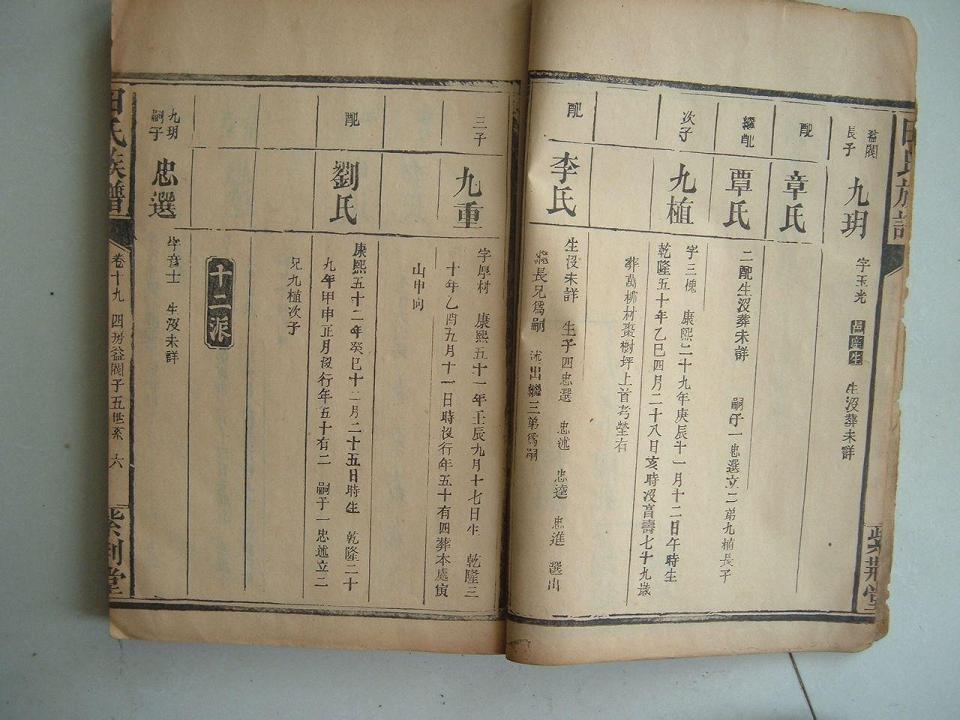 田氏族譜
紫荊堂
益閣
長子
九玥
字玉光 邑庠生 生沒葬未詳
配
章氏
繼配
覃氏
二配生沒葬未詳 嗣子一忠選立二弟九植長子
次子
九植
字三槐 康熙二十九年庚辰十一月十二日午時生
乾隆五十年乙巳四月二十八日亥時沒壽七十九歲
葬萬柳材棗樹坪上首考塋右
配
李氏
生沒未詳 生子四忠選 忠述 忠遠 忠進 選出
繼長兄爲嗣 述出繼三弟爲嗣
三子
九重
字厚材 康熙五十一年壬辰九月十七日生 乾隆三
十年乙酉五月十一日時沒行年五十有四葬本處寅
山申向
配
劉氏
康熙五十二年癸巳十二月二十五日時生 乾隆二十
九年甲申正月沒行年五十有二 嗣子一忠述立二
兄九植次子
十二派
九玥
嗣子
忠選
字音士 生沒未詳
田氏族譜
卷十九 四房益閣子五世系 六
紫荊堂